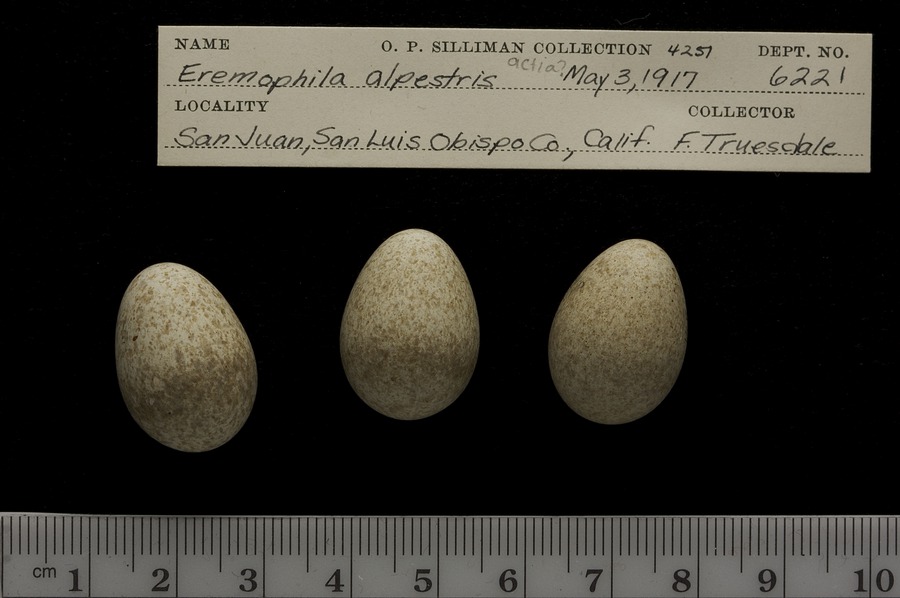 NAME O. P. SILLIMAN COLLECTION 4251 DEPT. NO.
Eremophila alpestris actia? May 3, 1917 6221
LOCALITY COLLECTOR
San Juan, San Luis Obispo Co., Calif. F. Truesdale
cm 1 2 3 4 5 6 7 8 9 10